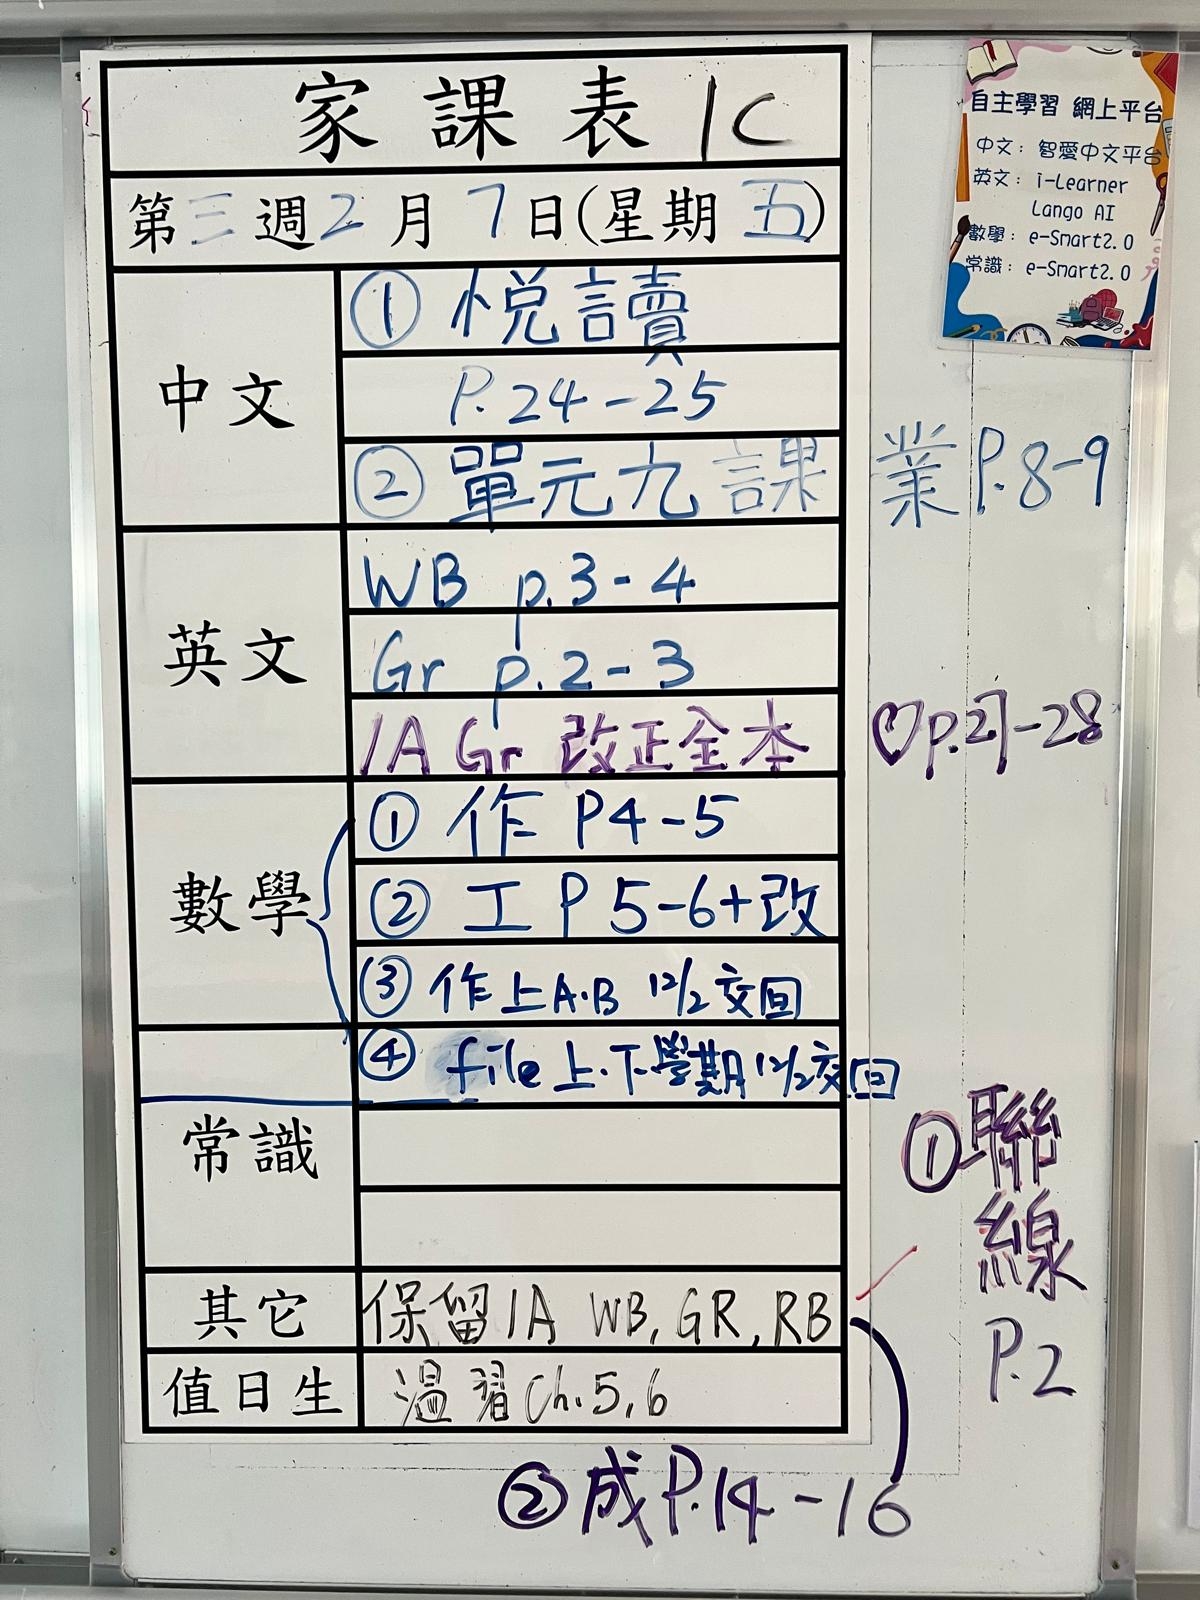 家課表 1C
第三週2月7日(星期五)
中文
① 悅讀
P.24-25
② 單元九課業P.8-9
英文
WB p.3-4
Gr p.2-3
1A Gr 改正全本 ♡p.27-28
數學
① 作 P4-5
② 工 P 5-6+改
③ 作上A.B 12/2交回
④ file上.下學期12/2交回
常識
其它
保留1A WB, GR, RB
值日生
溫習Ch.5,6
①聯線
P.2
②成P.14-16
自主學習 網上平台
中文：智愛中文平台
英文：i-Learner
Lango AI
數學：e-Smart2.0
常識：e-Smart2.0